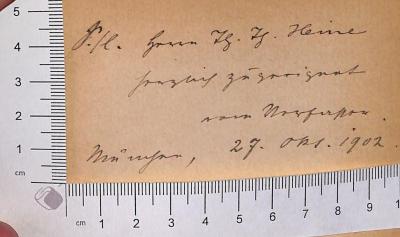 S./l. Herrn Th. Th. Heine
herzlich zugeeignet
vom Verfasser.
München, 27. Okt. 1902.
5
4
3
2
1
cm
cm 1 2 3 4 5 6 7 8 9